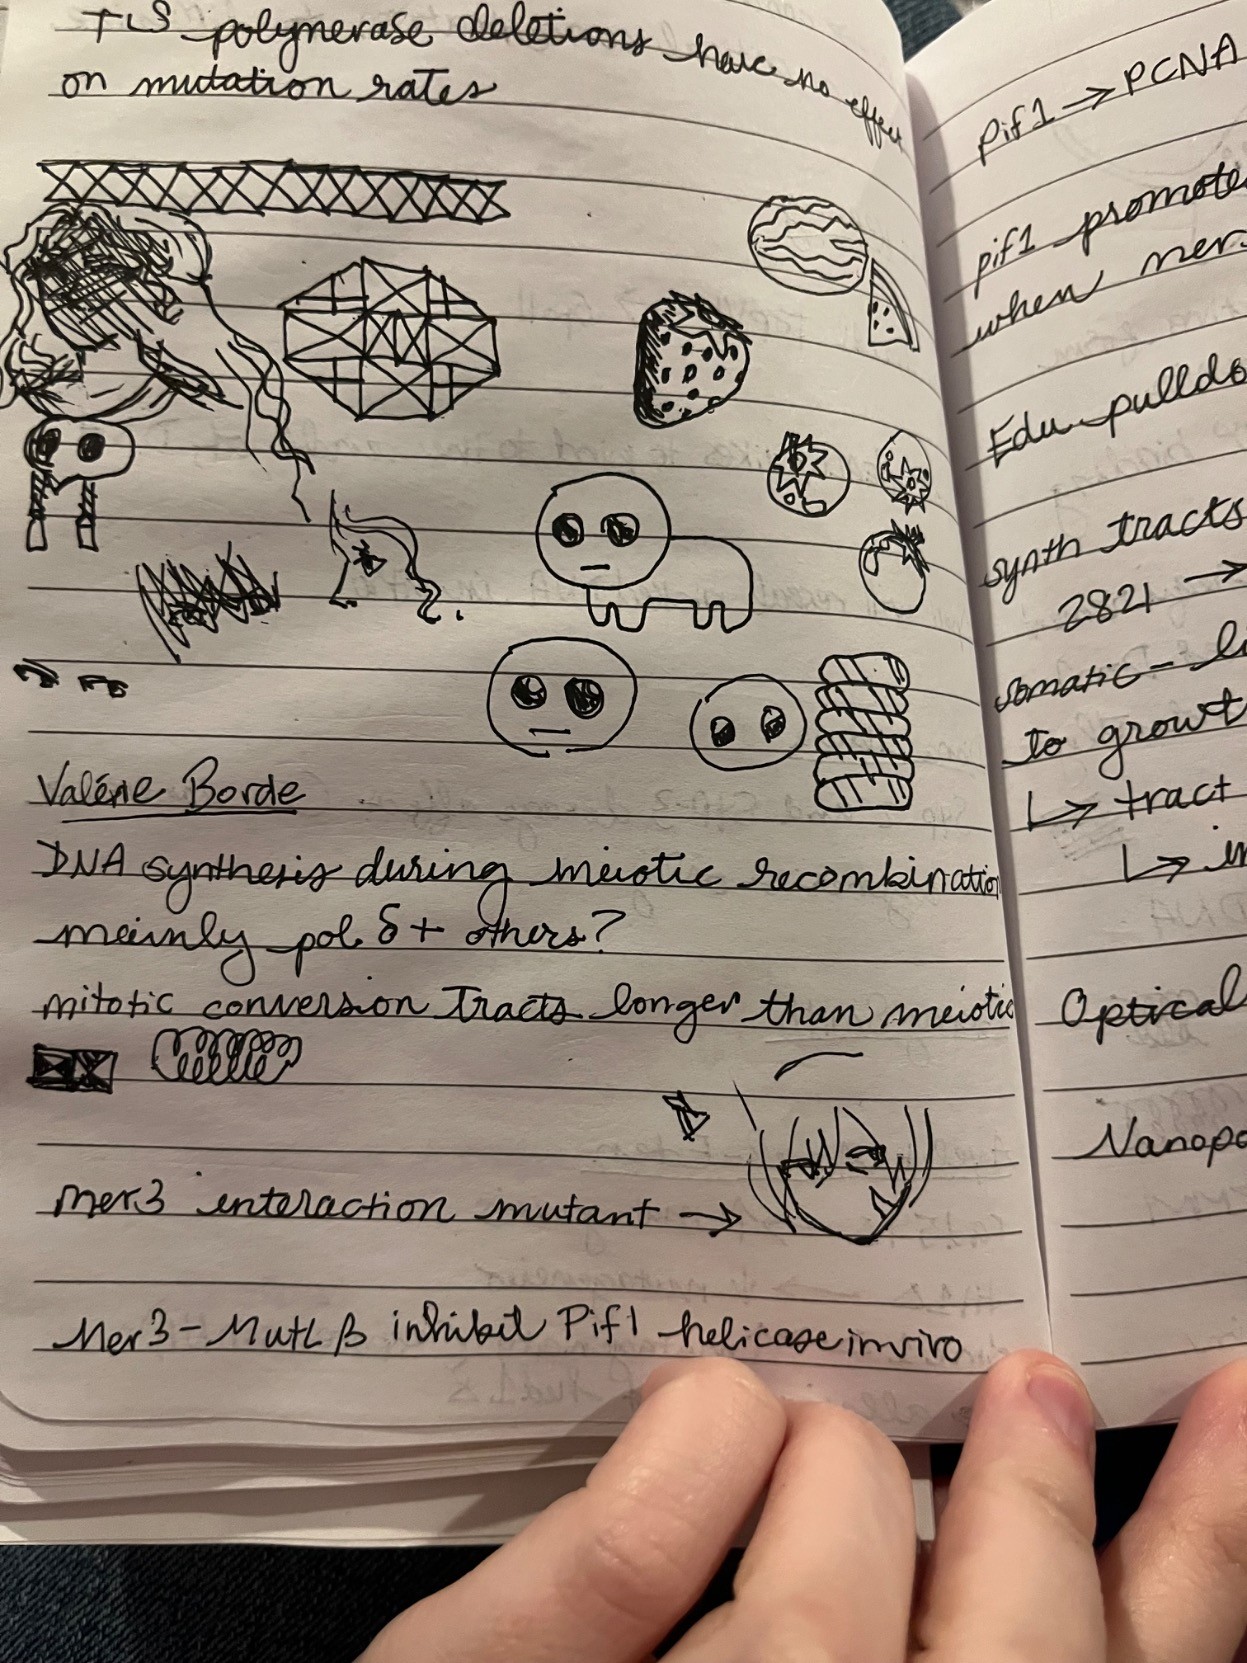 TLS polymerase deletions have no effect
on mutation rates
Valérie Borde
DNA synthesis during meiotic recombination
mainly pol δ + others?
mitotic conversion tracts longer than meiotic
Mer3 interaction mutant →
Mer3-MutLβ inhibit Pif1 helicase in vivo
Pif1 → PCNA
pif1 promote
when mer
Edu pulldo
synth tracts
2821 →
somatic -
to growt
↳ tract
↳ in
Optical
Nanopo